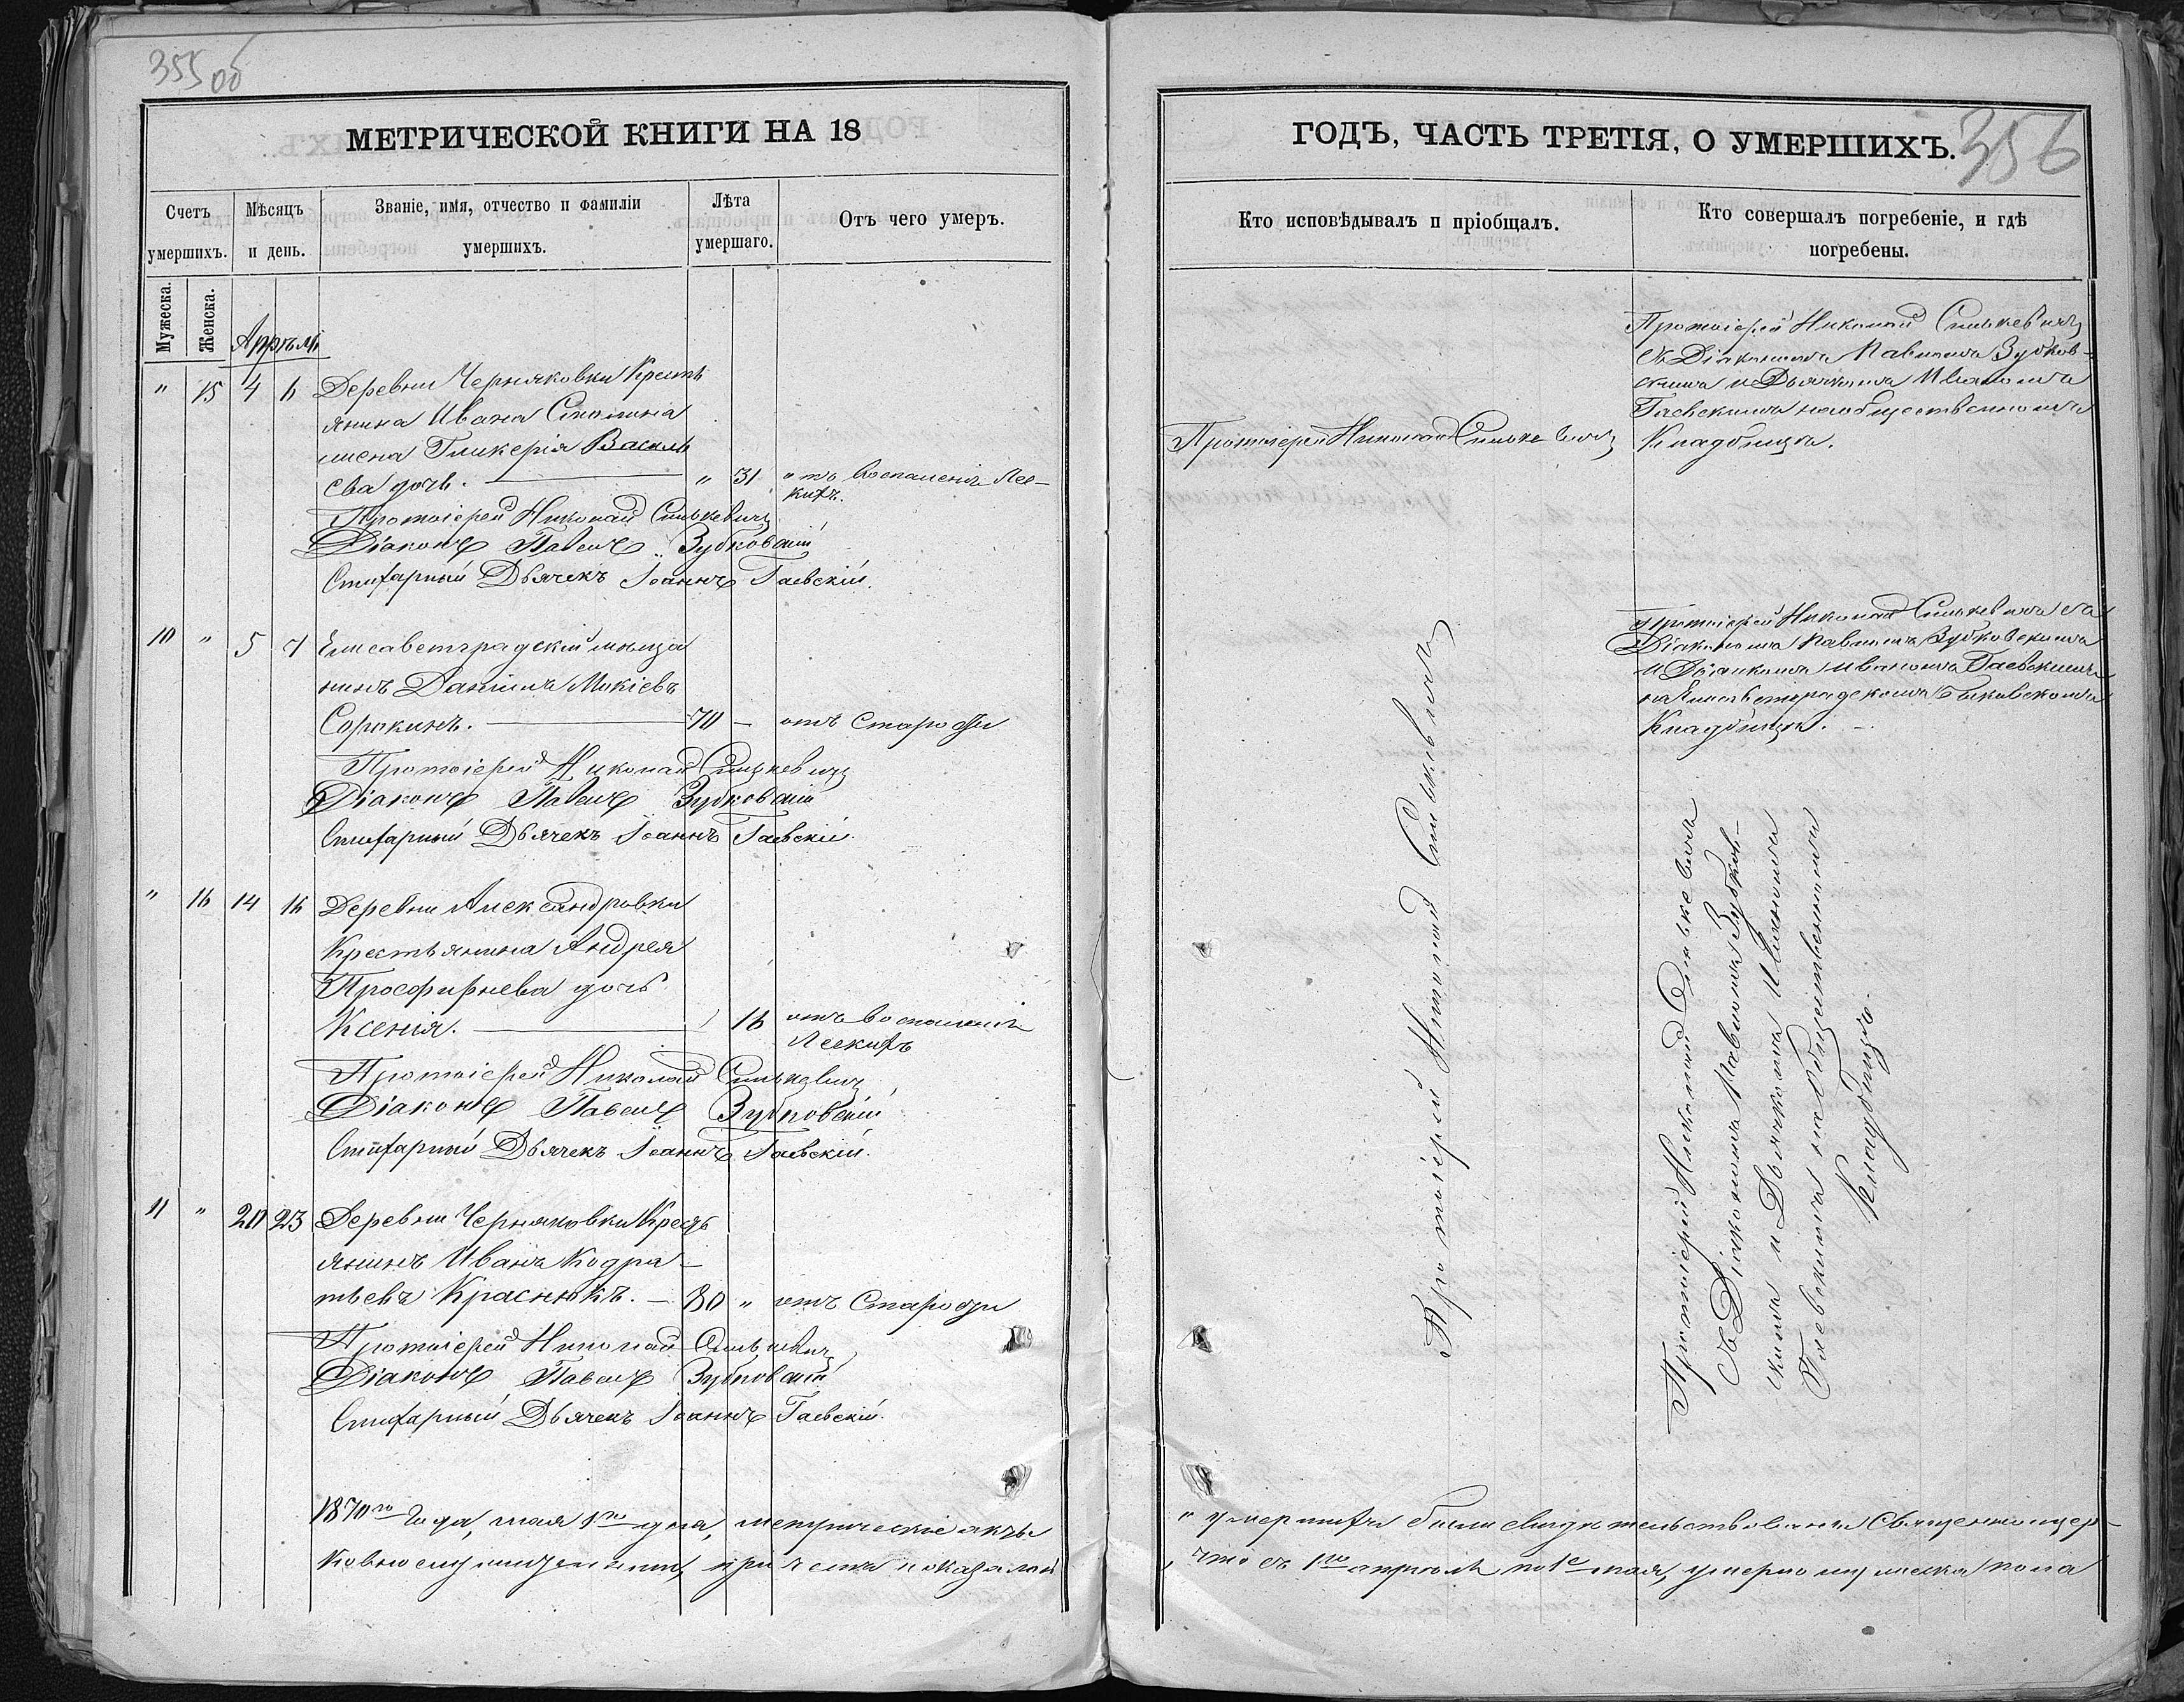 355 об
МЕТРИЧЕСКОЙ КНИГИ НА 18
Счетъ умершихъ.
Мѣсяцъ и день.
Званіе, имя, отчество и фамиліи умершихъ.
Лѣта умершаго.
Отъ чего умеръ.
Мужеска.
Женска.
Апрѣль
" 15 4 6 Деревни Черняковки Кресть
янина Ивана
Гликерія Василь
ева дочь. " 31 отъ воспаленія Лег-
кихъ.
Протоіерей Николай Синькевичъ
Діаконъ Павелъ Зубковскій
Стихарный Дьячекъ Іоаннъ Гаевскій.
10 " 5 7 Елисаветградскій мѣща
нинъ Даніилъ Мокіевъ
Сорокинъ. 70 — отъ Старости
Протоіерей Николай Синькевичъ
Діаконъ Павелъ Зубковскій
Стихарный Дьячекъ Іоаннъ Гаевскій.
" 16 14 16 Деревни Александровки
Крестьянина Андрея
дочь
Ксенія. 16 отъ воспаленія
Легкихъ
Протоіерей Николай Синькевичъ
Діаконъ Павелъ Зубковскій
Стихарный Дьячекъ Іоаннъ Гаевскій.
11 " 20 23 Деревни Черняковки Кресть
янинъ Иванъ Кодра-
тьевъ Краснюкъ. — 80 " отъ Старости
Протоіерей Николай Синькевичъ
Діаконъ Павелъ Зубковскій
Стихарный Дьячекъ Іоаннъ Гаевскій.
1870го Года, мая 1го дня, метрическіе акты
при чемъ показалось
356
ГОДЪ, ЧАСТЬ ТРЕТІЯ, О УМЕРШИХЪ.
Кто исповѣдывалъ и пріобщалъ.
Кто совершалъ погребеніе, и гдѣ погребены.
Протоіерей Николай Синькевичъ
Протоіерей Николай Синькевичъ
съ Діакономъ Павломъ Зубков-
скимъ и Дьячкомъ Иваномъ
Гаевскимъ на общественномъ
Кладбищѣ.
Протоіерей Николай Синькевичъ съ
Діакономъ Павломъ Зубковскимъ
и Дьячкомъ Иваномъ Гаевскимъ
на Елисаветградскомъ Быковскомъ
Кладбищѣ. —
Протоіерей Николай Синькевичъ
Протоіерей Николай Синькевичъ
съ Діакономъ Павломъ Зубков-
скимъ и Дьячкомъ Иваномъ
Гаевскимъ на Общественномъ
Кладбищѣ.
о умершихъ были свидѣтельствованы Священноцер-
что съ 1го апрѣля по 1е мая, умерло мужеска пола